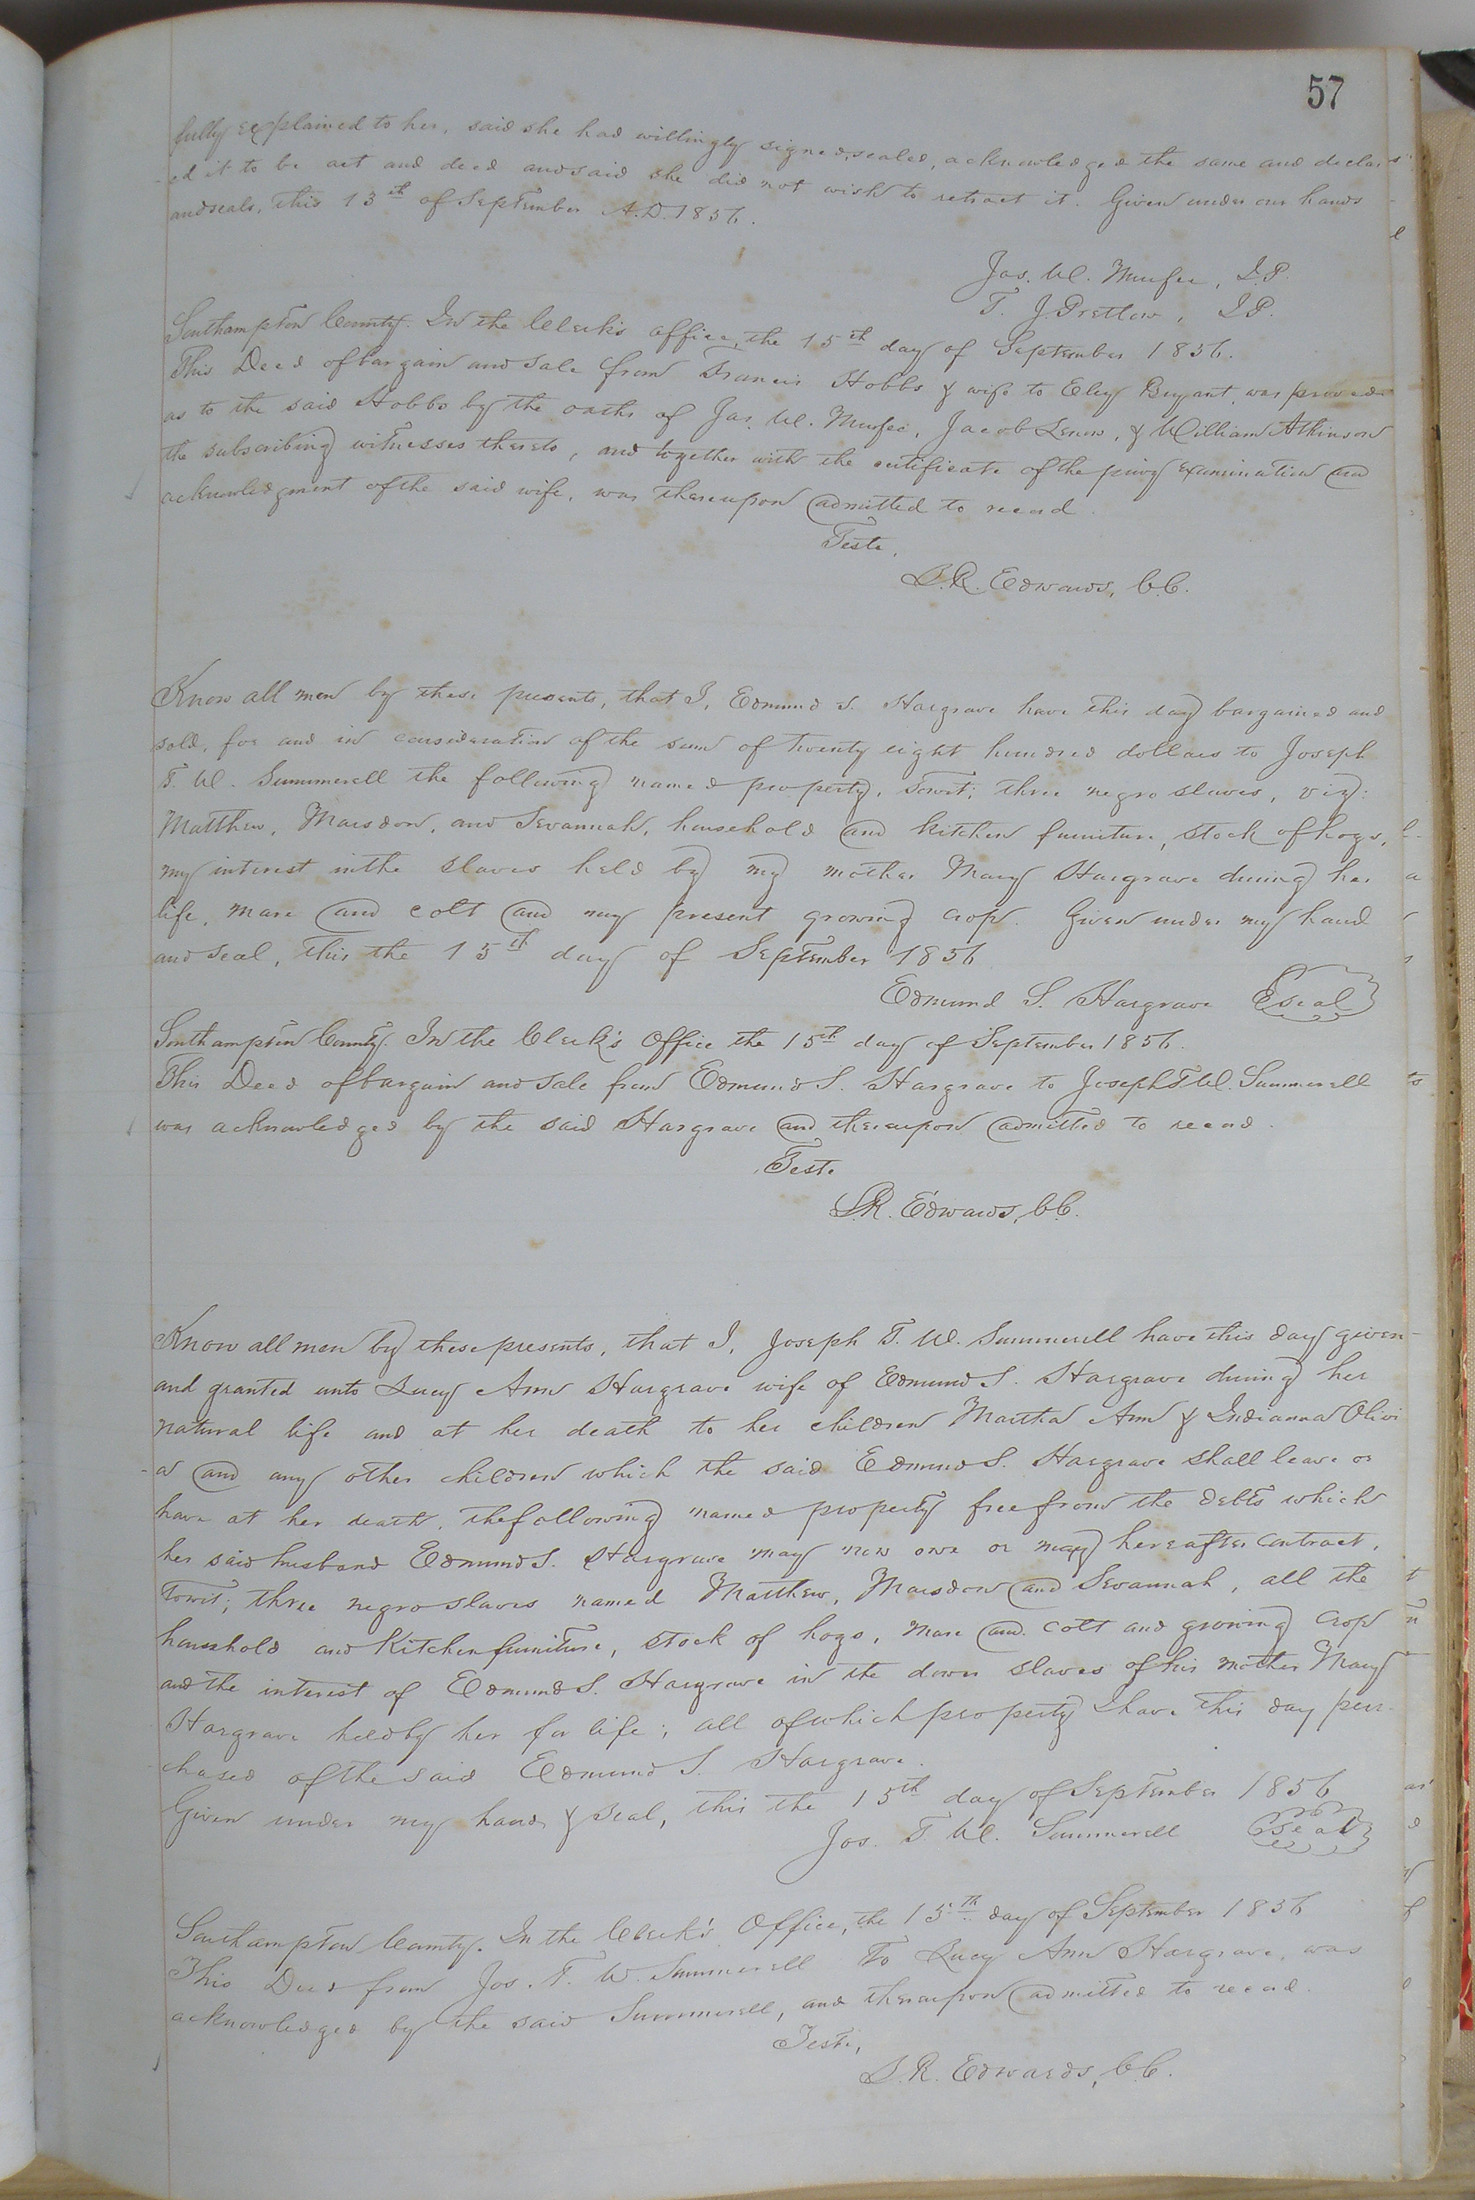 57
fully explained to her, said she had willingly signed, sealed, acknowledged the same and declar
ed it to be act and deed and said she did not wish to retract it. Given under our hands
and seals, this 13th of September A.D. 1856.
Jas. W. Murfee, J.P.
T. J. Pretlow, J.P.
Southampton County. In the Clerk's office, the 15th day of September 1856.
This Deed of bargain and sale from Francis Hobbs & wife to Eley Bryant, was proved
as to the said Hobbs by the oaths of Jas. W. Murfee, Jacob Lenow, & William Atkinson
the subscribing witnesses thereto, and together with the certificate of the privy examination and
acknowledgment of the said wife, was thereupon admitted to record.
Teste,
L.R. Edwards, C.C.
Know all men by these presents, that I, Edmund S. Hargrave have this day bargained and
sold, for and in consideration of the sum of twenty eight hundred dollars to Joseph
T. W. Summerell the following named property, towit; three negro slaves, viz:
Matthew, Marsdon, and Sevannah, household and kitchen furniture, stock of hogs,
my interest in the slaves held by my mother Mary Hargrave during her
life, mare and colt and my present growing crop. Given under my hand
and seal, this the 15th day of September 1856
Edmund S. Hargrave Seal
Southampton County. In the Clerk's Office the 15th day of September 1856.
This Deed of bargain and sale from Edmund S. Hargrave to Joseph T. W. Summerell
was acknowledged by the said Hargrave and thereupon admitted to record.
Teste
L.R. Edwards, C.C.
Know all men by these presents, that I, Joseph T. W. Summerell have this day given
and granted unto Lucy Ann Hargrave wife of Edmund S. Hargrave during her
natural life and at her death to her children Martha Ann & Indianna Olivi
a and any other children which the said Edmund S. Hargrave shall leave or
have at her death, the following named property free from the debts which
her said husband Edmund S. Hargrave may now owe or may hereafter contract,
towit; three negro slaves named Matthew, Marsdon and Sevannah, all the
household and Kitchen furniture, stock of hogs, mare and colt and growing crop
and the interest of Edmund S. Hargrave in the dower slaves of his mother Mary
Hargrave held by her for life; all of which property I have this day pur-
chased of the said Edmund S. Hargrave.
Given under my hand & seal, this the 15th day of September 1856
Jos. T. W. Summerell Seal
Southampton County. In the Clerk's Office, the 15th day of September 1856
This Deed from Jos. T. W. Summerell to Lucy Ann Hargrave, was
acknowledged by the said Summerell, and thereupon admitted to record.
Teste,
L.R. Edwards, C.C.